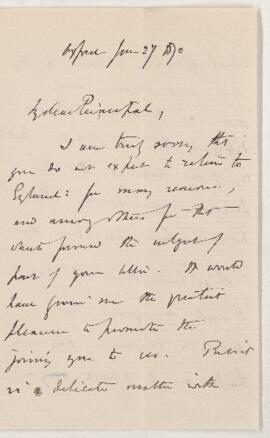 Oxford June 27 1870
My dear Principal,
I am truly sorry that
you do not expect to return to
England: for many reasons,
and among others for that
which formed the subject of
part of your letter. It would
have given me the greatest
pleasure to promote the
joining you to us. But it
is a delicate matter with